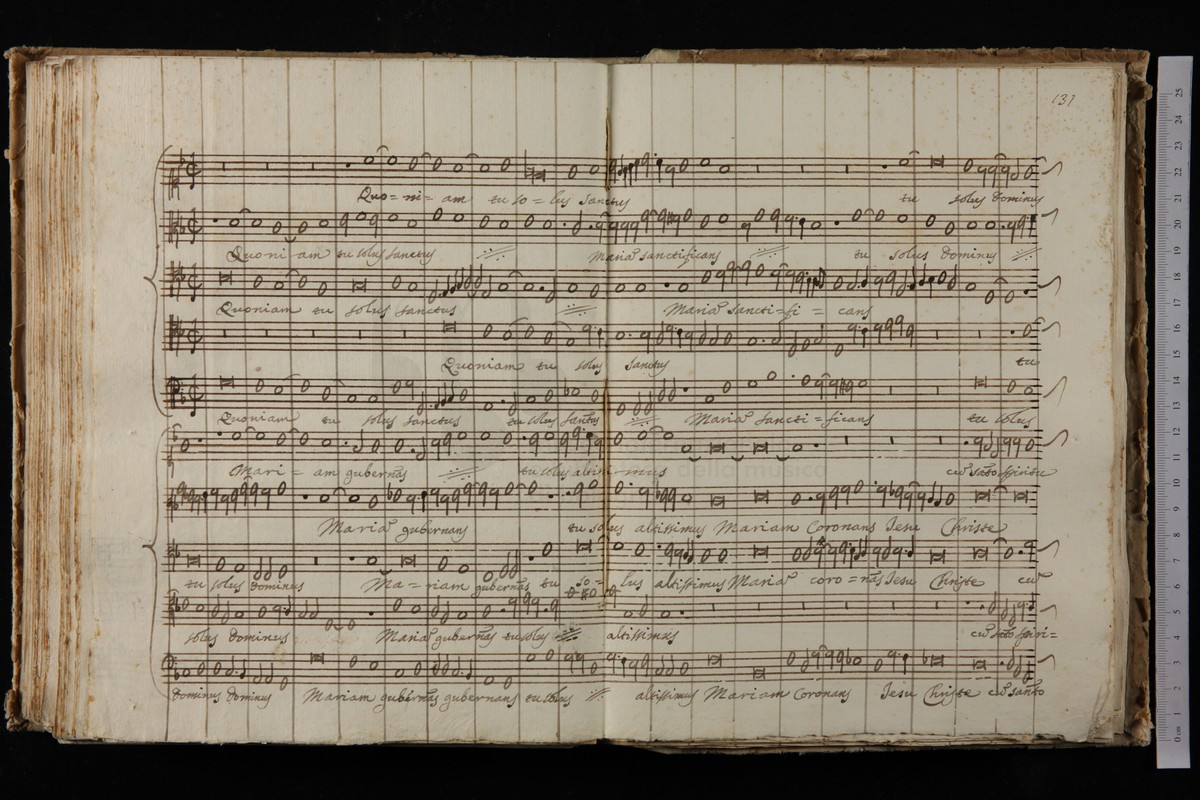 131
Quo= ni= am tu so= lus sanctus tu solus dominus
Quoni am tu solus sanctus Maria sanctificans tu solus dominus
Quoniam tu solus sanctus Maria sancti=fi = cans
Quoniam tu solus sanctus tu
Quoniam tu solus sanctus tu solus sanctus Maria sancti=ficans tu solus
Mari= am gubernas tu solus altissimus cū sāto spiritu
Maria gubernans tu solus altissimus Mariam Coronans Iesu Christe
tu solus dominus Ma=riam gubernas tu so= lus altissimus Maria coro=nās Iesu Christe cū
solus dominus Maria gubernās tu solus altissimus cū sāto spiri=
dominus dominus Mariam gubernās gubernans tu solus altissimus Mariam Coronans Iesu Christe cū santo
della musica
25
24
23
22
21
20
19
18
17
16
15
14
13
12
11
10
9
8
7
6
5
4
3
2
1
0 cm